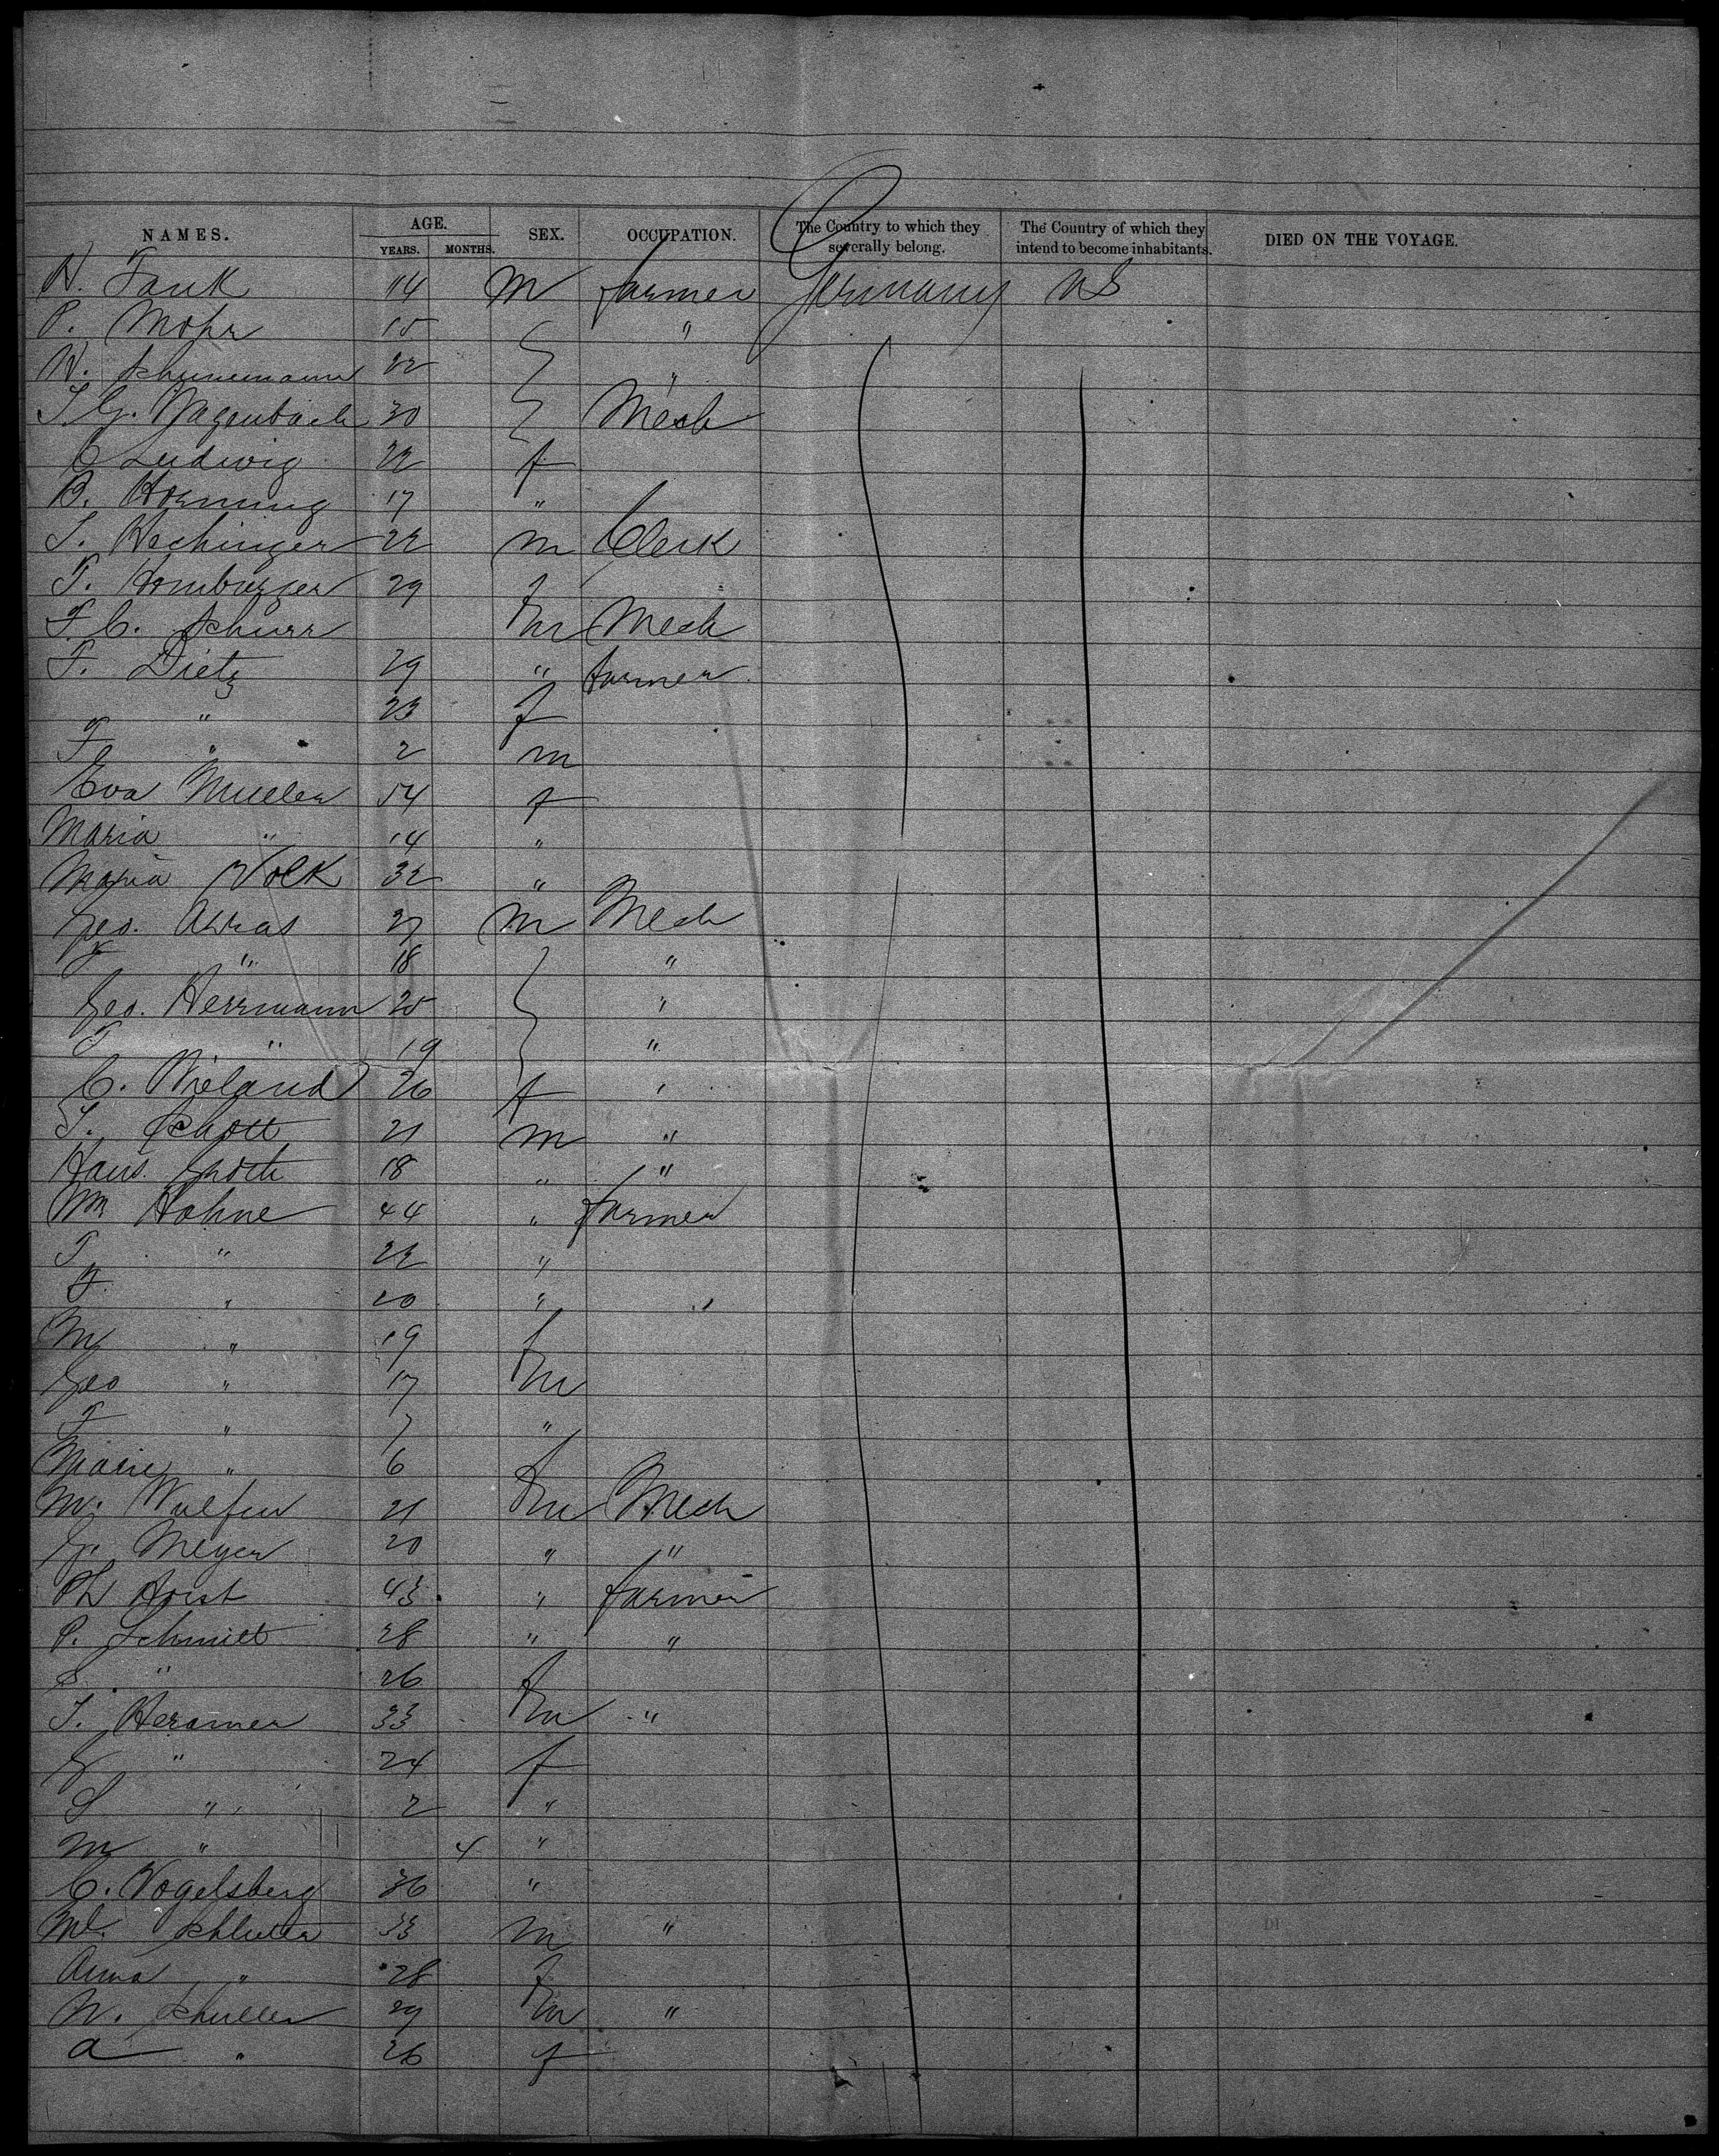 NAMES. AGE. YEARS. MONTHS. SEX. OCCUPATION. The Country to which they severally belong. The Country of which they intend to become inhabitants. DIED ON THE VOYAGE.
H. Fank 14 M farmer Germany US
P. Mohr 15 "
H. Schunemann 22 "
J. G. Wagenbach 30 Mech
C Ludwig 22 f
B. Hornung 17 "
S. Hechinger 22 m Clerk
F. Homburger 29 f
F. C. Schurr m Mech
F. Dietz 29 " farmer
" 23 f
F " 2 m
Eva Mueller 54 f
Maria " 14 "
Maria Volk 32 "
Geo. Arras 27 m Mech
" 18 "
Geo. Herrmann 25 "
F " 19 "
C. Wieland 26 f "
J. Schott 21 m "
Hans. Groth 18 " "
Wm Hohne 44 " farmer
F " 22 "
" 20 " "
M " 19 f
Geo " 17 m
F " 7 "
Marie " 6 f
M. Wulfen 21 m Mech
G. Meyer 20 " "
Ph Horst 43 " farmer
P. Schmitt 28 " "
S. " 26 f
J. Heramer 33 m "
G " 24 f
S " 2 "
M " 4 "
C. Vogelsberg 36 "
Schlutter 33 m "
Anna " 28 f
W. Schuller 29 m "
A " 26 f